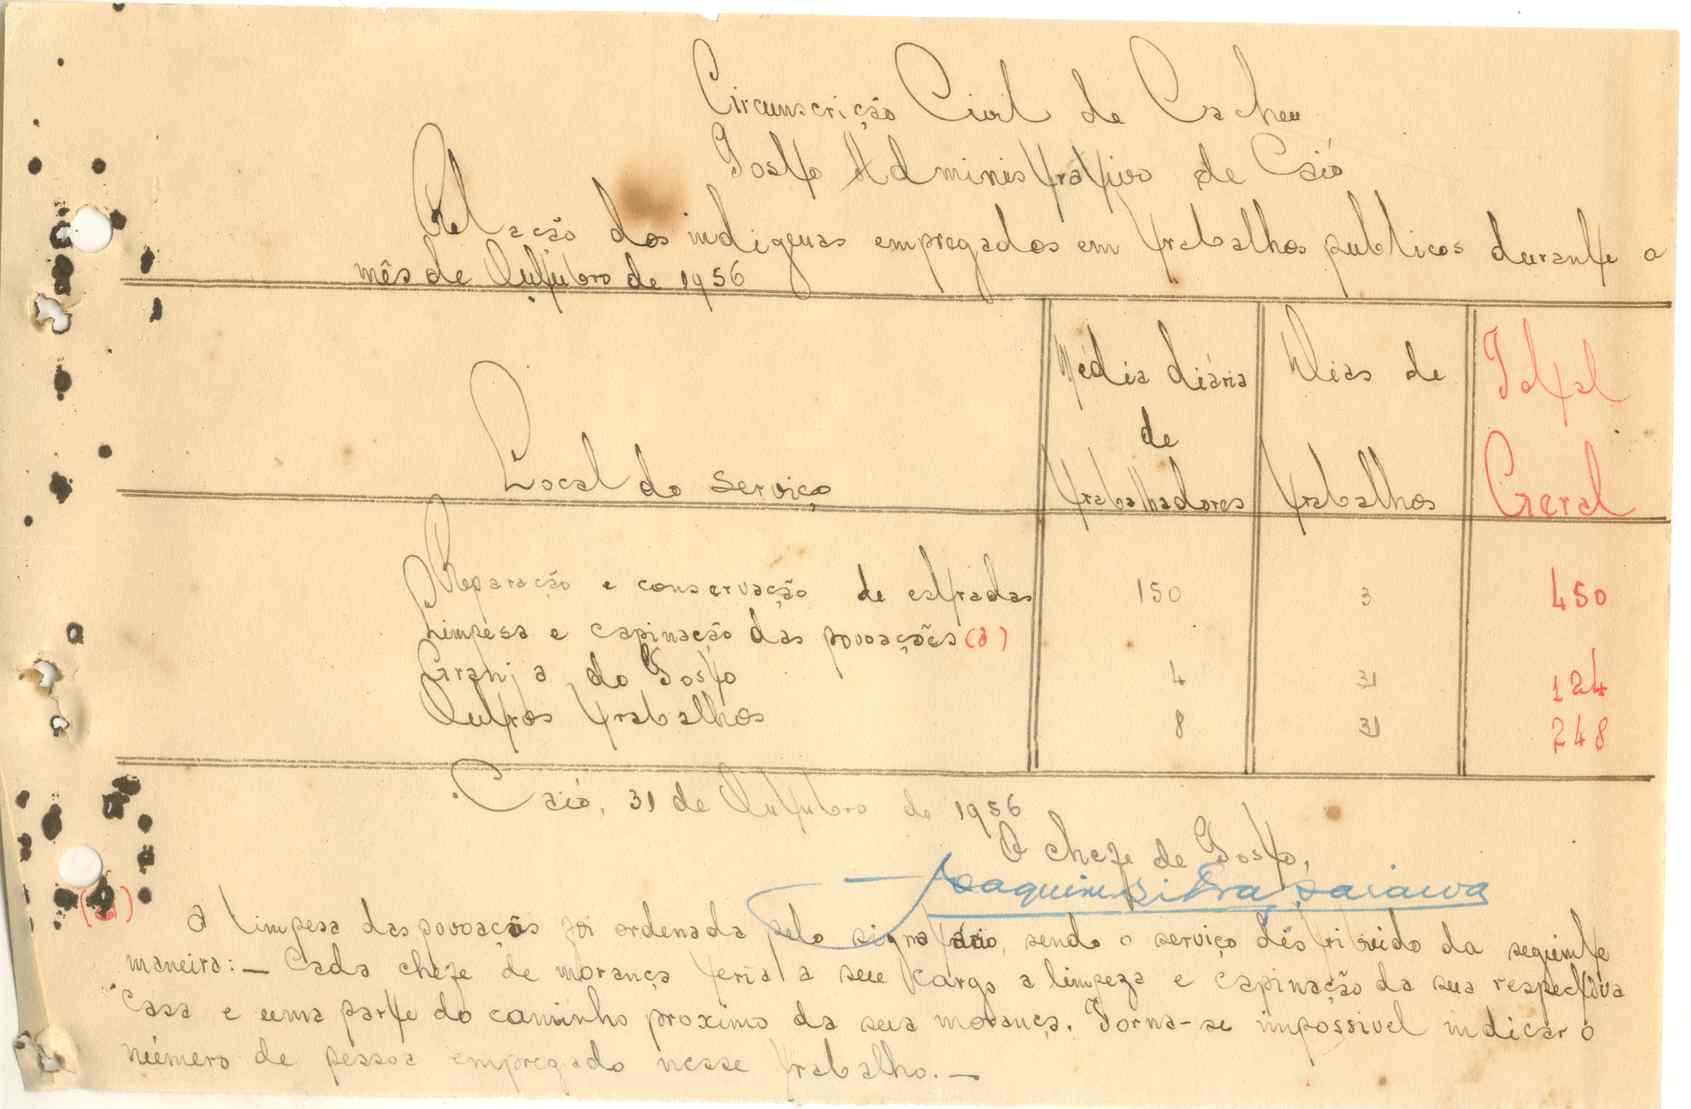 Circunscrição Civil de Cacheu
Posto Administrativo de Caió
Relação dos indigenas empregados em trabalhos publicos durante o
mês de Outubro de 1956
Local do serviço
Média diária de trabalhadores
Dias de trabalhos
Total Geral
Reparação e conservação de estradas 150 3 450
Limpesa e capinação das povoações (a)
Granja do Posto 4 31 124
Outros trabalhos 8 31 248
Caió, 31 de Outubro de 1956
O chefe de Posto,
Joaquim Silva Saraiva
(a) A limpesa das povoações foi ordenada pelo signatário, sendo o serviço distribuido da seguinte
maneira: — Cada chefe de morança teria a seu cargo a limpeza e capinação da sua respectiva
casa e uma parte do caminho proximo da sua morança. Torna-se impossivel indicar o
número de pessoa empregado nesse trabalho. —